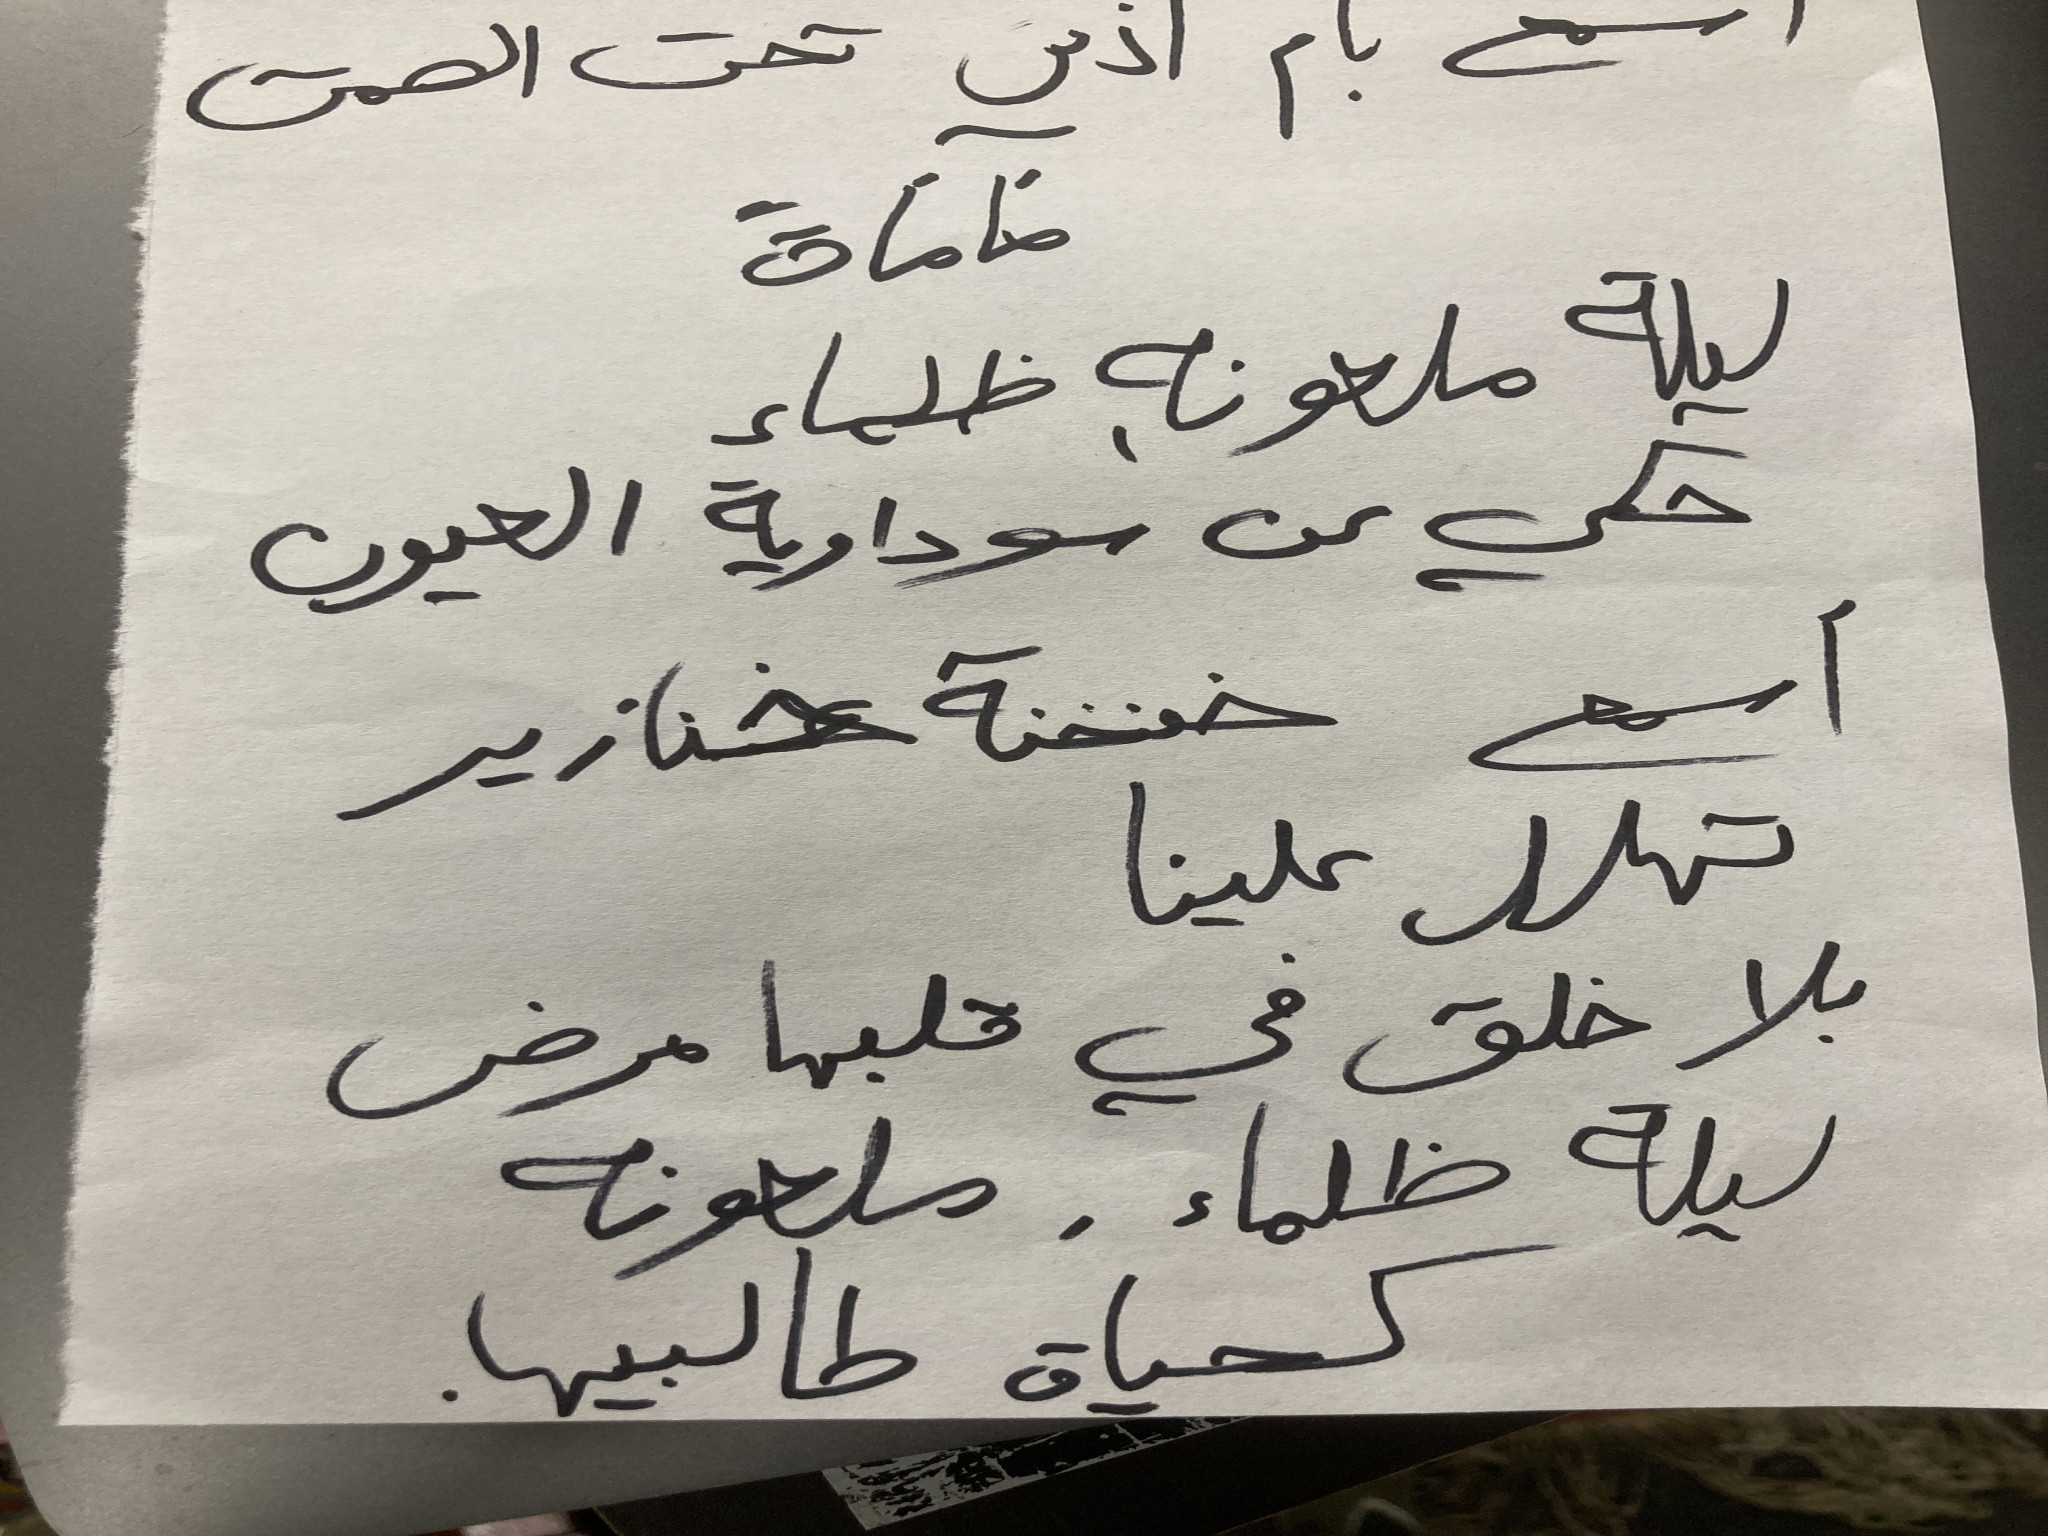 أسمع بأم أذني تحت الصمت
خامات
ليلة ملعونه، ظلماء
حكي عن سوداوية العيون
أسمع خنخنة خنازير
تهلل علينا
بلا خلق في قلبها مرض
ليلة ظلماء، ملعونه
كحياة طالبيها.